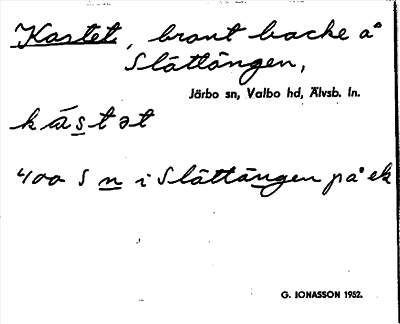 Kastet, brant backe å
Slättängen,
Järbo sn, Valbo hd, Älvsb. ln.
kástət
400 S n i Slättängen på ek
G. JONASSON 1952.